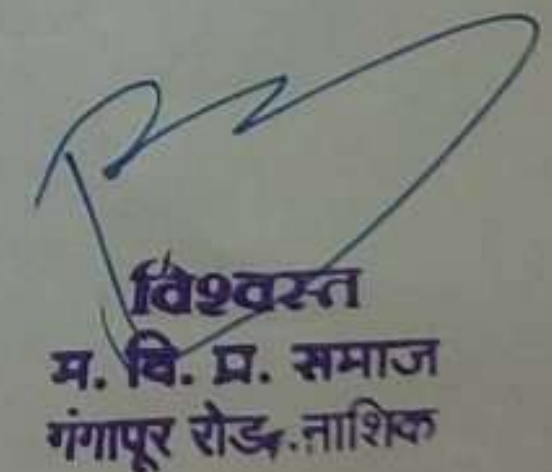 विश्वस्त
म. वि. प्र. समाज
गंगापूर रोड, नाशिक